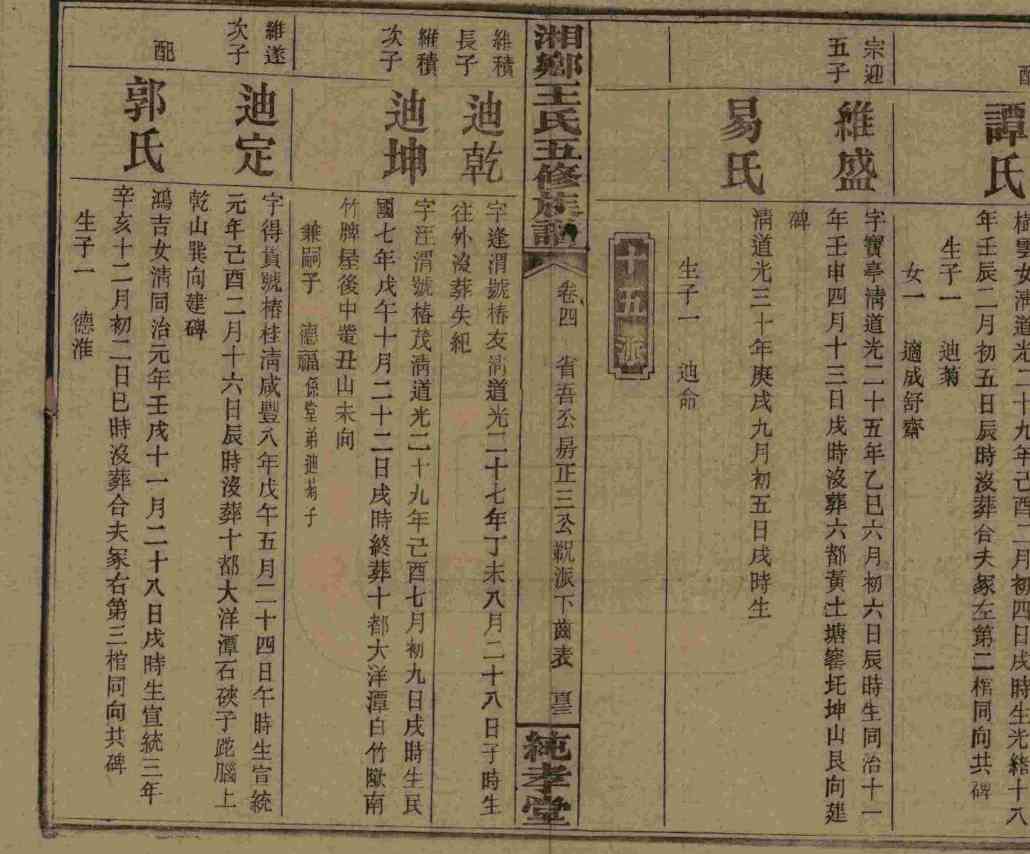 配
譚氏
樹雲女清道光二十九年己酉二月初四日戌時生光緒十八
年壬辰二月初五日辰時沒葬合夫冢左第二棺同向共碑
生子一 迪菊
女一 適成舒齋
宗迎
五子
維盛
字寶亭清道光二十五年乙巳六月初六日辰時生同治十一
年壬申四月十三日戌時沒葬六都黃土塘窰圫坤山艮向建
碑
易氏
清道光三十年庚戌九月初五日戌時生
生子一 迪命
十五派
湘鄉王氏五修族譜
卷四 省吾公房正三公貺派下齒表
純孝堂
維積
長子
迪乾
字逢渭號椿友清道光二十七年丁未八月二十八日子時生
往外沒葬失紀
維積
次子
迪坤
字汪渭號椿茂清道光二十九年己酉七月初九日戌時生民
國七年戊午十月二十二日戌時終葬十都大洋潭白竹㘰南
竹脾屋後中叢丑山未向
兼嗣子 德福係堂弟迪菊子
維遂
次子
迪定
字得貴號椿桂清咸豐八年戊午五月二十四日午時生宣統
元年己酉二月十六日辰時沒葬十都大洋潭石硤子跎腦上
乾山巽向建碑
配
郭氏
鴻吉女清同治元年壬戌十一月二十八日戌時生宣統三年
辛亥十二月初二日巳時沒葬合夫冢右第三棺同向共碑
生子一 德淮